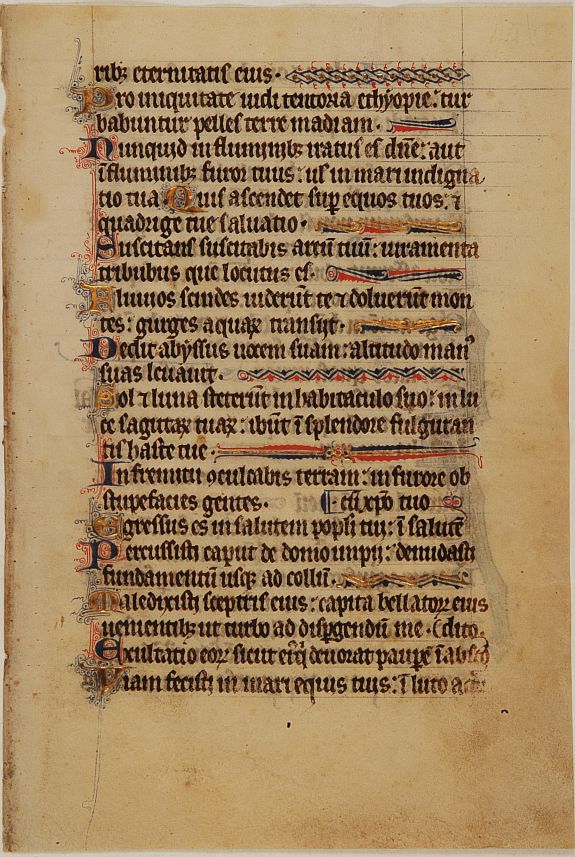 ribꝫ eternitatis eius.
Pro iniquitate uidi tentoria ethyopie: tur
babuntur pelles terre madiam.
Nunquid in fluminibꝫ iratus es dn̄e: aut
ī fluminibꝫ furor tuus: uł in mari indigna
tio tua. Quis ascendet sup equos tuos: ⁊
quadrige tue saluatio.
Suscitans suscitabis arcū tuū: iuramenta
tribubus que locutus es.
Fluuios scindes uiderūt te ⁊ doluerūt mon
tes: gurges aquaꝝ transijt.
Dedit abyssus uocem suam: altitudo manꝰ
suas leuauit.
Sol ⁊ luna steterūt in habitaculo suo: in lu
ce sagitaꝝ tuaꝝ: ibūt ī splendore fulguran
tis haste tue
In fremitu ↄculcabis terram: in furore ob
stupefacies gentes. cū xp̄o tuo
Egressus es in salutem popli tui: ī salutē
Percussisti caput de domo impij: denudasti
fundamentū usqꝫ ad collū.
Maledixisti sceptris eius: capita bellatoꝝ eius
uenientibꝫ ut turbo ad dispgendū me.
Exultatio eoꝝ sicut ei qi deuorat paupē ī absco
Viam fecisti in mari equis tuis: ī luto